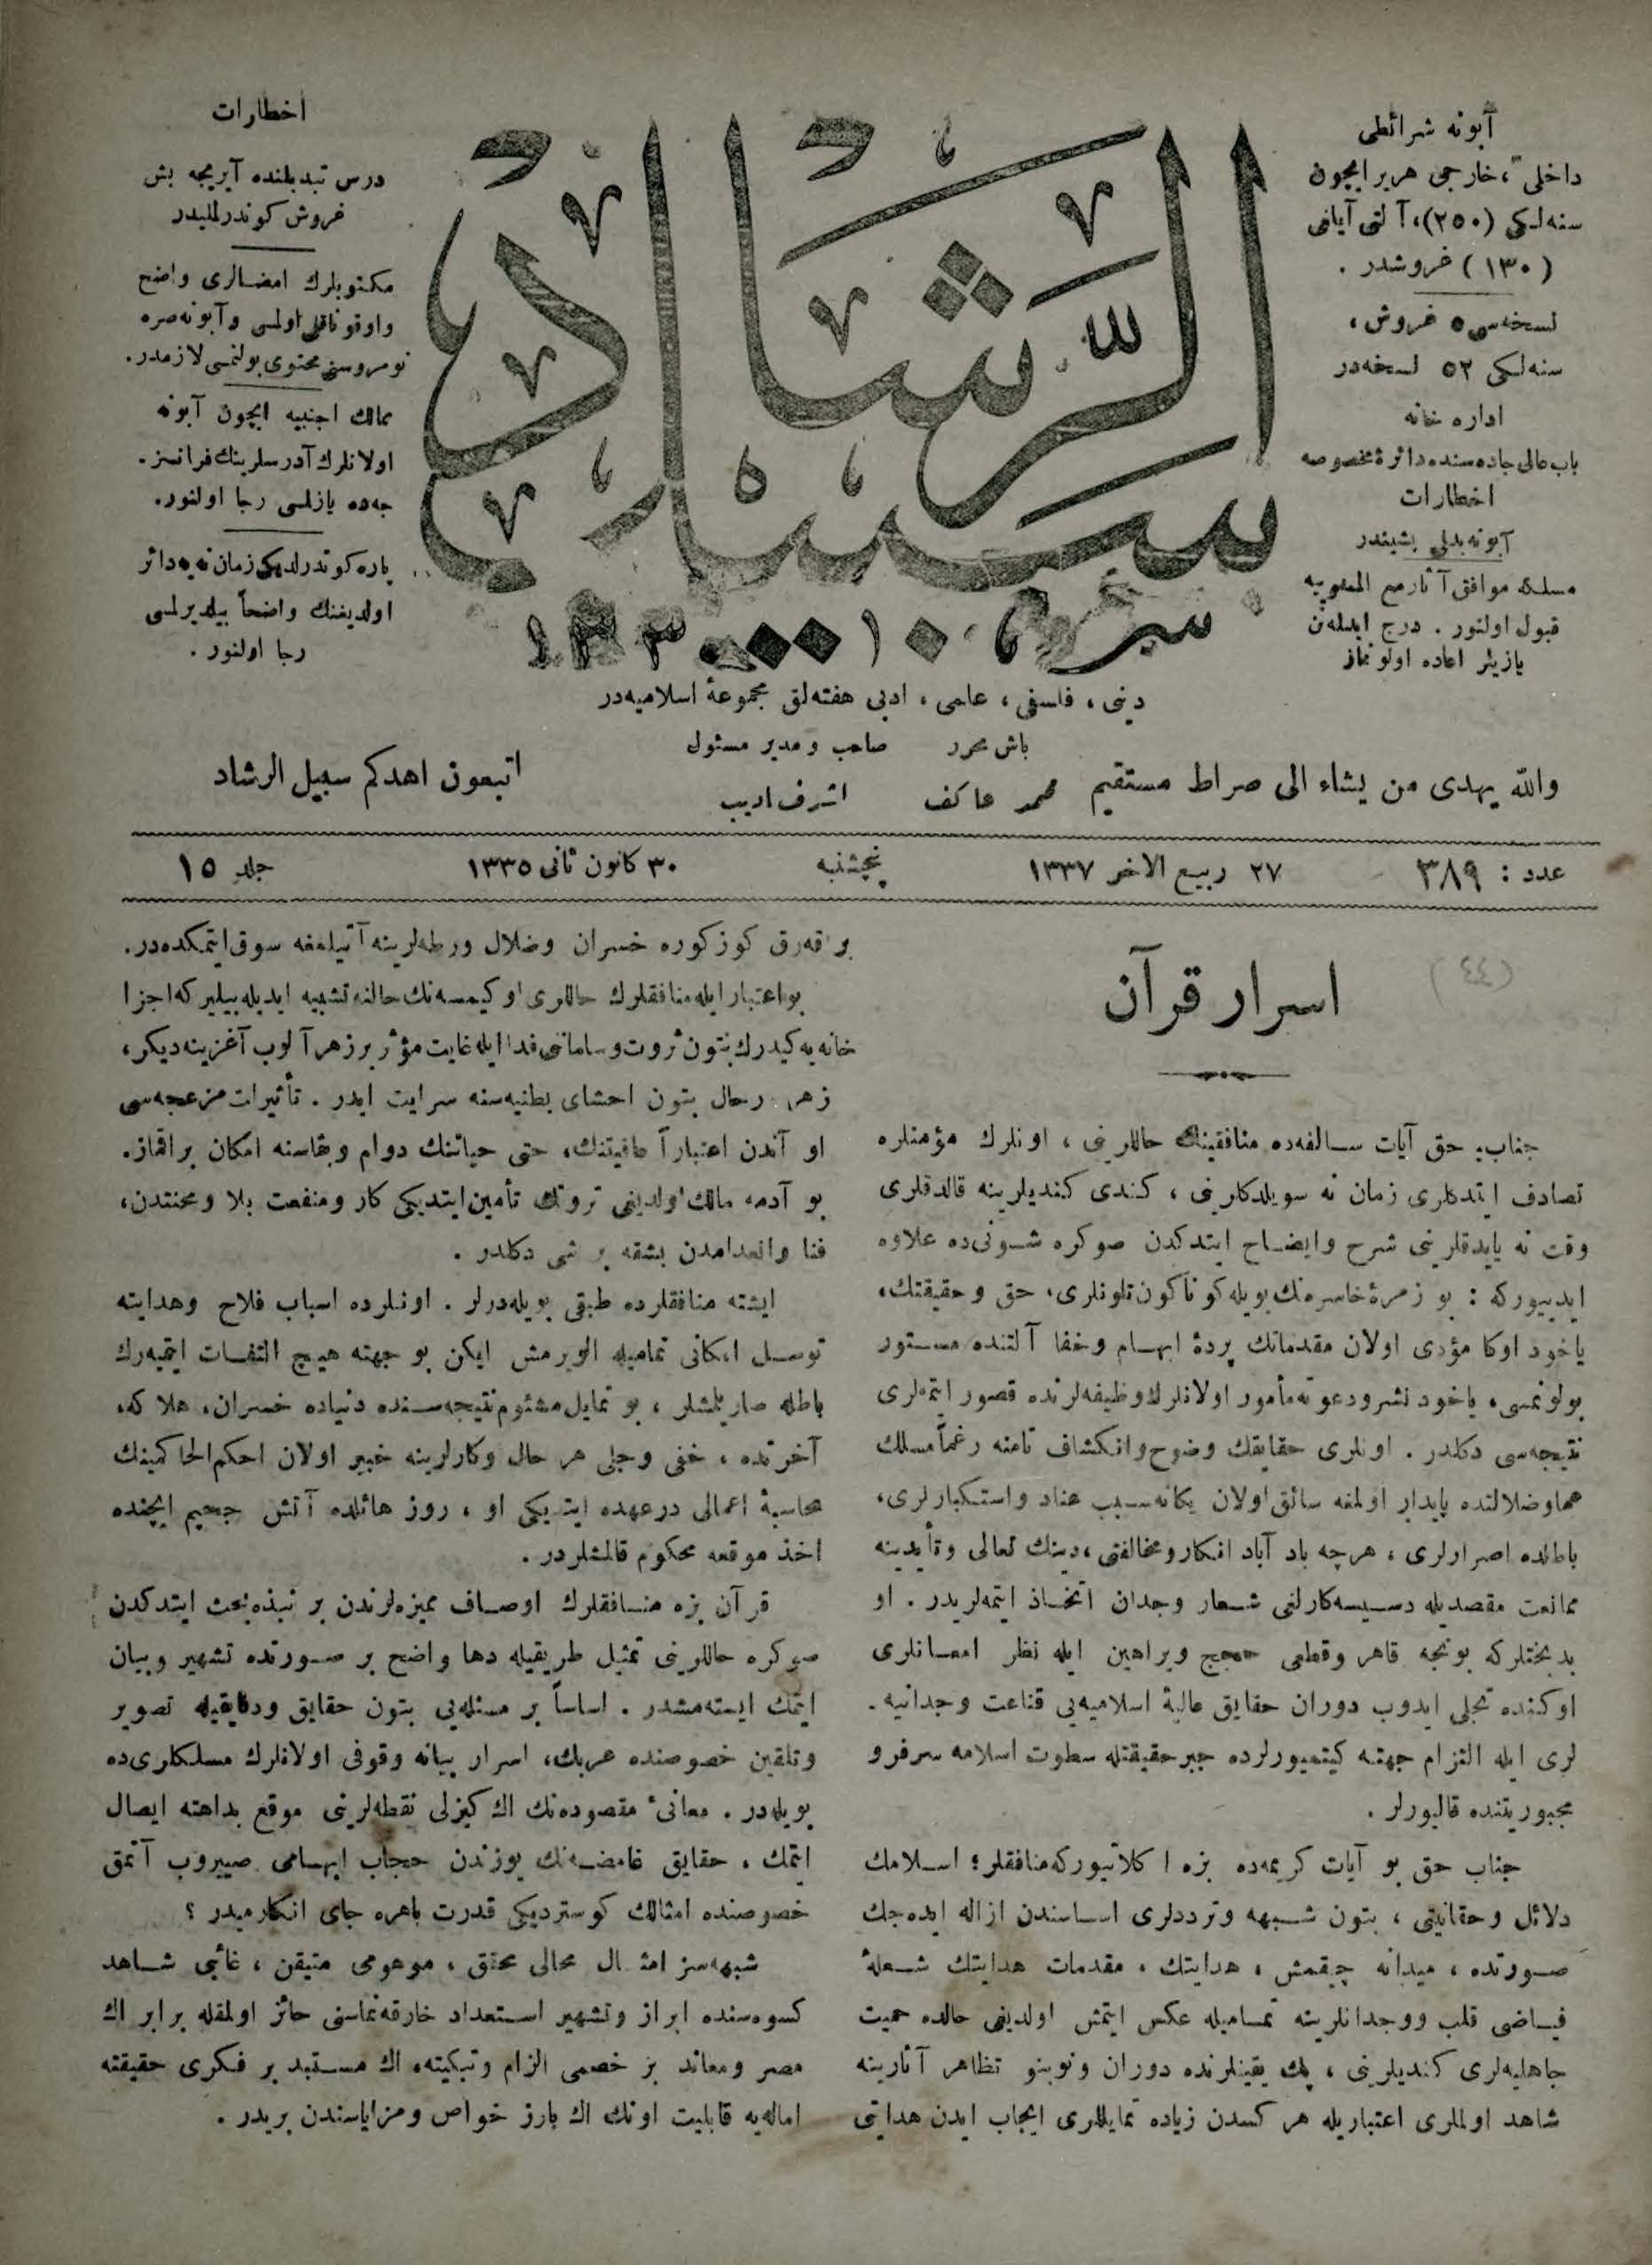 آبونه شرائطی
داخلی، خارجی هر یر ایچون
سنه‌لکی (۲۵۰)، آلتی آیلغی
(۱۳۰) غروشدر .
نسخه‌سی ۵ غروش،
سنه‌لکی ۵۲ نسخه‌در
اداره خانه
باب عالی جاده‌سنده دائرهٔ مخصوصه
اخطارات
آبونه بدلی پشیندر
مسلکه موافق آثار مع الممنونیه
قبول اولنور . درج ایدلمه‌ین
یازیلر اعاده اولونماز
سبیل الرشاد
اخطارات
درس تبدیلنده آیریجه بش
غروش کوندرلملیدر
مکتوبلرك امضالری واضح
واوقوناقلی اولمسی وآبونه صره
نومروسنی محتوی بولنمسی لازمدر.
ممالك اجنبیه ایچون آبونه
اولانلرك آدرسلرینك فرانسز-
جه‌ده یازلمسی رجا اولنور.
پاره کوندرلدیکی زمان نه‌یه دائر
اولدیغنك واضحاً بیلدیرلمسی
رجا اولنور .
دینی ، فلسفی ، علمی ، ادبی هفته‌لق مجموعهٔ اسلامیه‌در
باش محرر
صاحب و مدیر مسئول
والله یهدی من یشاء الی صراط مستقیم
محمد عاکف
اشرف ادیب
اتبعون اهدکم سبیل الرشاد
عدد : ۳۸۹
۲۷ ربیع الاخر ۱۳۳۷
پنچشنبه
۳۰ کانون ثانی ۱۳۳۵
جلد ۱۵
اسرار قرآن
(٤٤)
جناب حق آیات سالفه‌ده منافقینك حاللرینی ، اونلرك مؤمنلره
تصادف ایتدکلری زمان نه سویلدکلرینی ، کندی کندیلرینه قالدقلری
وقت نه یاپدقلرینی شرح وایضاح ایتدکدن صوکره شونی‌ده علاوه
ایدییورکه : بو زمرهٔ خاسره‌نك بویله کوناکون تلونلری، حق وحقیقتك،
یاخود اوکا مؤدی اولان مقدماتك پردهٔ ابهام وخفا آلتنده مستور
بولونمسی، یاخود نشر ودعوته مأمور اولانلرك وظیفه‌لرنده قصور ایتمه‌لری
نتیجه‌سی دکلدر . اونلری حقایقك وضوح وانکشاف تامنه رغماً مسلك
عما وضلالتنده پایدار اولمغه سائق اولان یکانه سبب عناد واستکبارلری،
باطلده اصرارلری ، هرچه باد آباد افکار ومخالفتی ، دینك تعالی وتأییدینه
ممانعت مقصدیله دسیسه‌کارلغی شعار وجدان اتخاذ ایتمه‌لریدر . او
بدبختلرکه بونجه قاهر وقطعی حجج وبراهین ایله نظر امعانلری
اوکنده تجلی ایدوب دوران حقایق عالیهٔ اسلامیه‌یی قناعت وجدانیه-
لری ایله التزام جهتنه کیتمیورلرده جبر حقیقتله سطوت اسلامه سرفرو
مجبوریتنده قالیورلر .
جناب حق بو آیات کریمه‌ده بزه اکلاتیورکه منافقلر؛ اسلامك
دلائل وحقانیتی ، بتون شبهه وترددلری اساسندن ازاله ایده‌جك
صورتده ، میدانه چیقمش ، هدایتك ، مقدمات هدایتك شعلهٔ
فیاضی قلب ووجدانلرینه تمامیله عکس ایتمش اولدیغی حالده حمیت
جاهلیه‌لری کندیلرینی ، پك یقینلرنده دوران ونوبنو تظاهر آثارینه
شاهد اولملری اعتباریله هر کسدن زیاده تمایللری ایجاب ایدن هدایتی
براقه‌رق کوزکوره خسران وضلال ورطه‌لرینه آتیلمغه سوق ایتمکده‌در.
بو اعتبار ایله منافقلرك حاللری او کیمسه‌نك حالنه تشبیه ایدیله‌بیلیرکه اجزا
خانه‌یه کیدرك بتون ثروت وسامانی فدا ایله غایت مؤثر بر زهر آلوب آغزینه دیکر،
زهر درحال بتون احشای بطنیه‌سنه سرایت ایدر . تأثیرات مزعجه‌سی
او آندن اعتباراً عافیتنك، حتی حیاتنك دوام وبقاسنه امکان براقماز.
بو آدمه مالك اولدیغی ثروتك تأمین ایتدیکی کار ومنفعت بلا ومحنتدن،
فنا وانعدامدن بشقه بر شی دکلدر .
ایشته منافقلرده طبقی بویله‌درلر . اونلرده اسباب فلاح وهدایته
توسل امکانی تمامیله الویرمش ایکن بو جهته هیچ التفات ایتمیه‌رك
باطله صاریلمشلر ، بو تمایل مشئوم نتیجه‌سنده دنیاده خسران، هلاکه،
آخرتده ، خفی وجلی هر حال وکارلرینه خبیر اولان احکم الحاکمینك
محاسبهٔ اعمالی درعهده ایتدیکی او ، روز هائلده آتش جحیم ایچنده
اخذ موقعه محکوم قالمشلردر .
قرآن بزه منافقلرك اوصاف ممیزه‌لرندن بر نبذه بحث ایتدکدن
صوکره حاللرینی تمثیل طریقیله دها واضح بر صورتده تشهیر وبیان
ایتمك ایسته‌مشدر . اساساً بر مسئله‌یی بتون حقایق ودقایقیله تصویر
وتلقین خصوصنده عربك، اسرار بیانه وقوفی اولانلرك مسلکلری‌ده
بویله‌در . معانئ مقصوده‌نك اك کیزلی نقطه‌لرینی موقع بداهته ایصال
ایتمك ، حقایق غامضه‌نك یوزندن حجاب ابهامی صییروب آتمق
خصوصنده امثالك کوستردیکی قدرت باهره جای انکارمیدر ؟
شبهه‌سز امثال محالی محقق ، موهومی متیقن ، غائبی شاهد
کسوه‌سنده ابراز وتشهیر استعداد خارقه‌نماسنی حائز اولمقله برابر اك
مصر ومعاند بر خصمی الزام وتبکیته، اك مستبد بر فکری حقیقته
اماله‌یه قابلیت اونك اك بارز خواص ومزایاسندن بریدر .